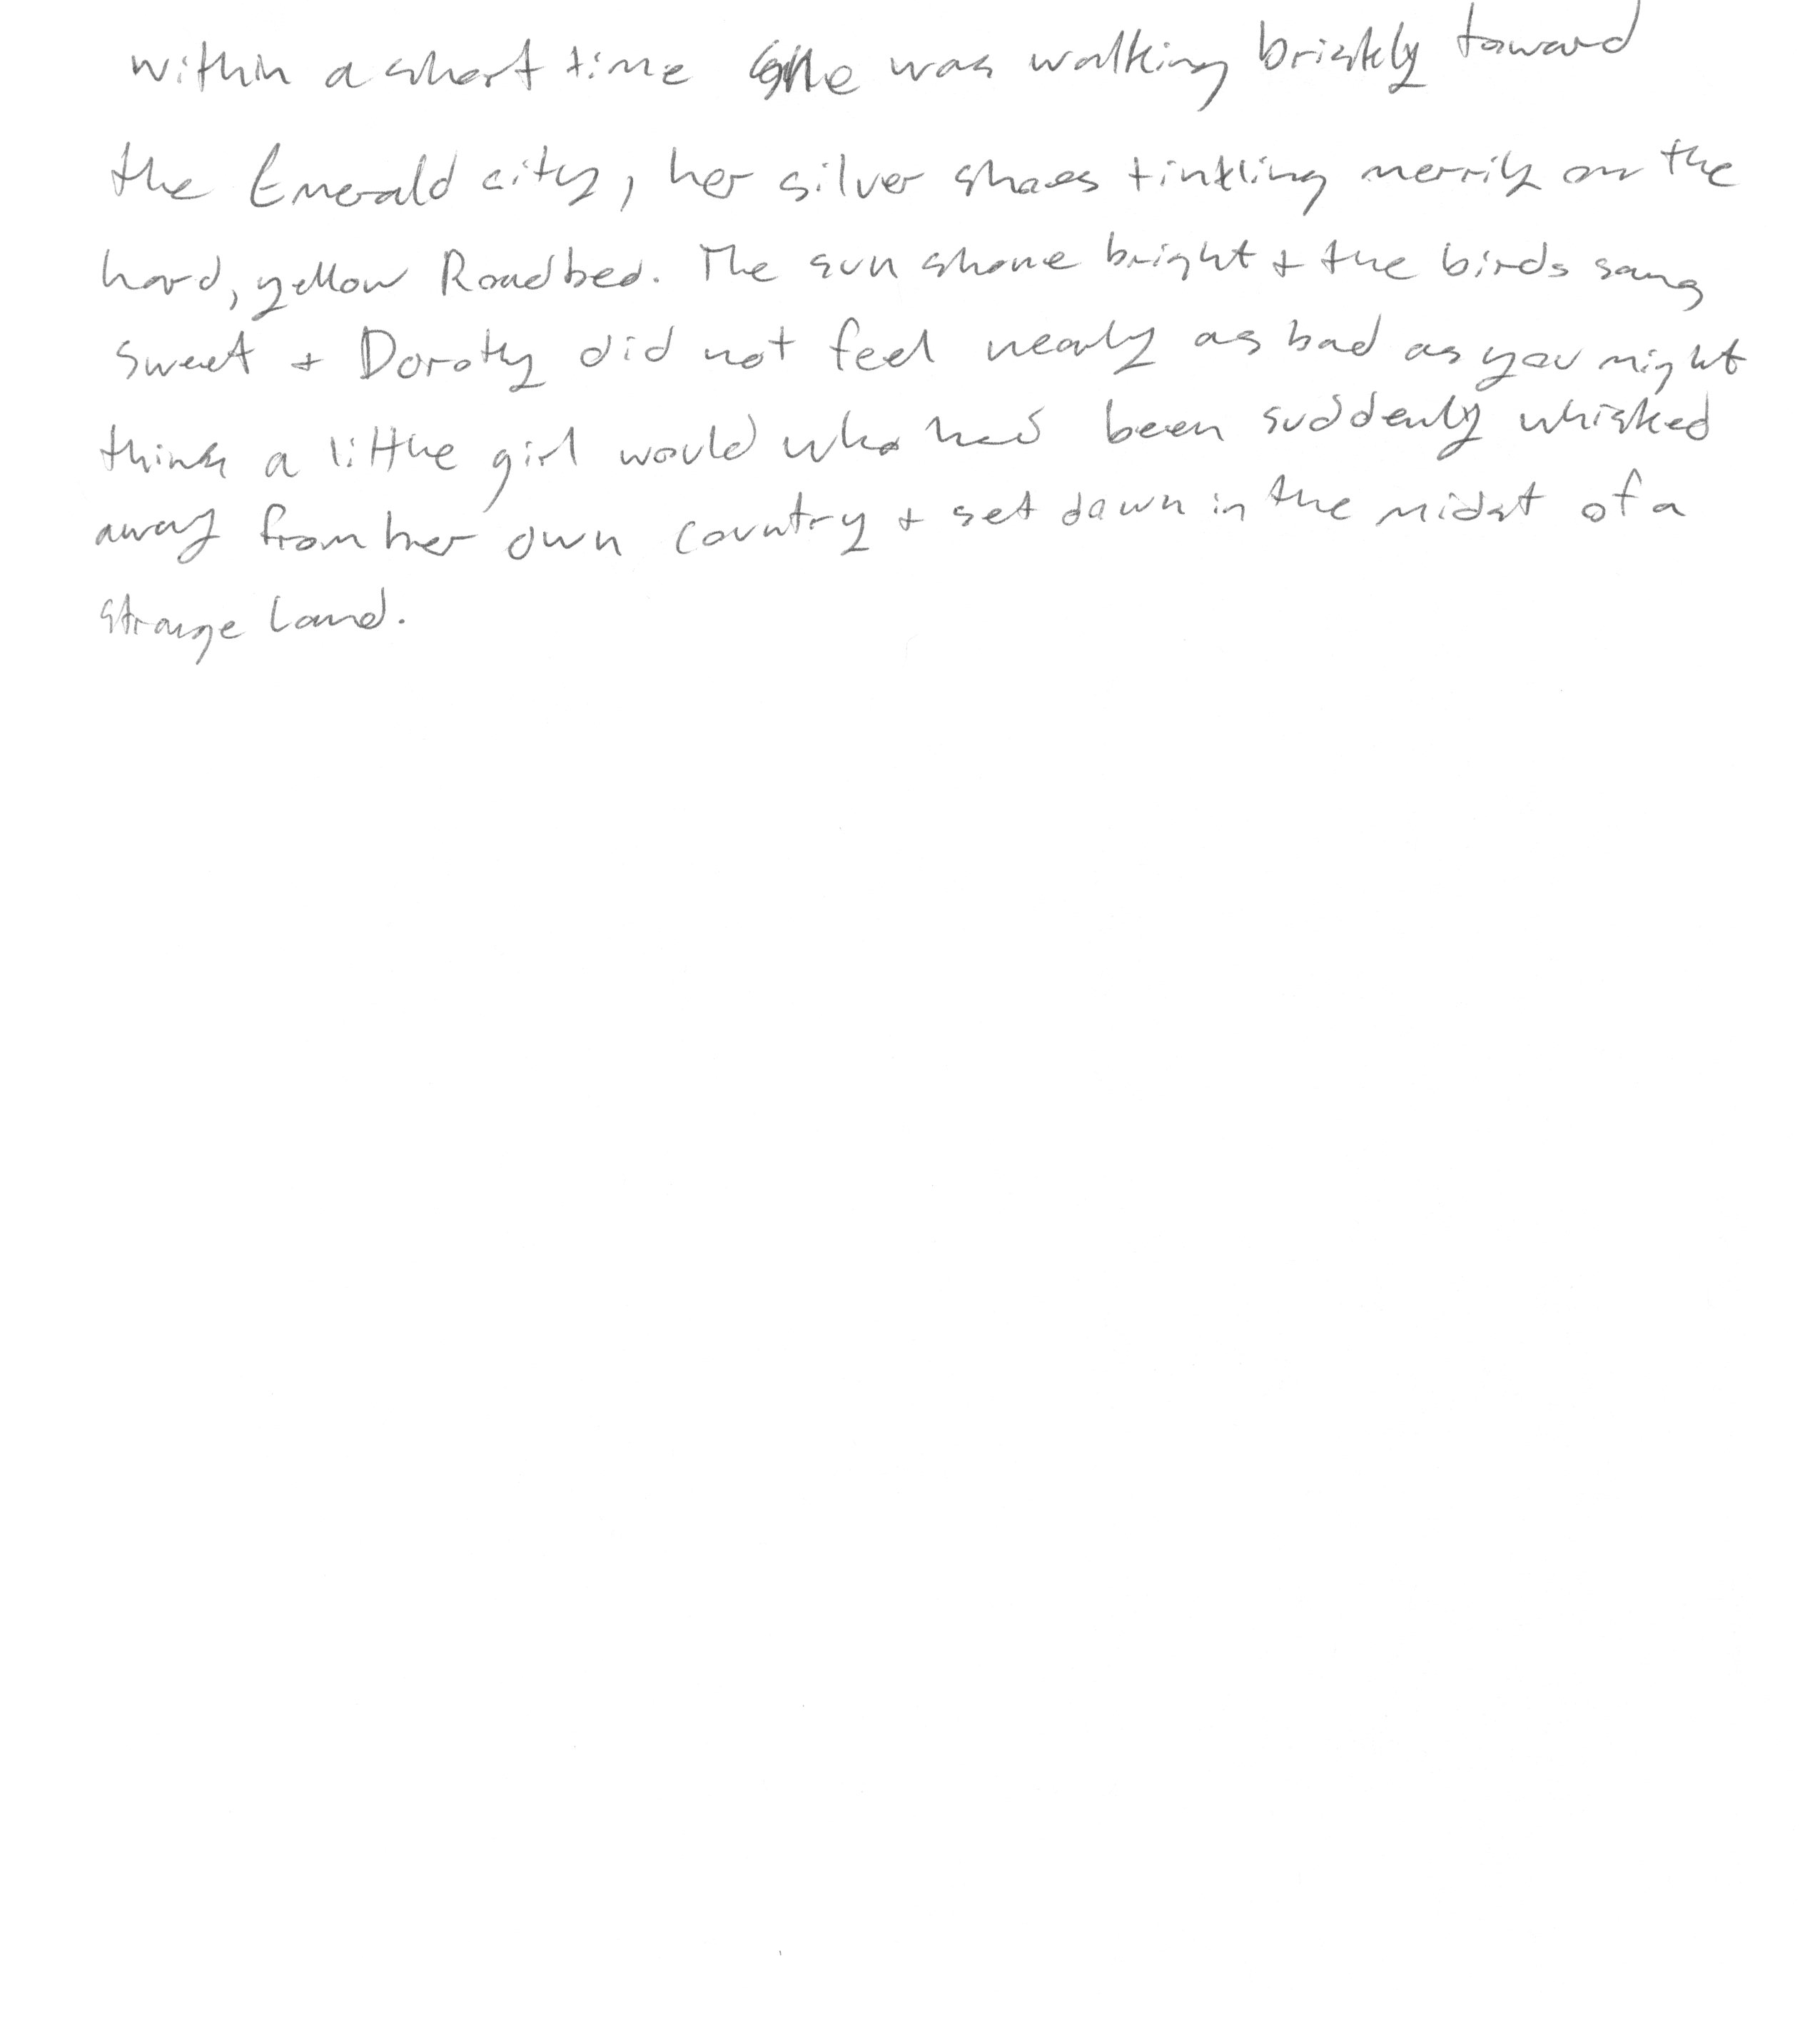 within a short time she was walking briskly toward
the Emerald city, her silver shoes tinkling merrily on the
hard, yellow Roadbed. The sun shone bright + the birds sang
sweet + Dorothy did not feel nearly as bad as you might
think a little girl would who had been suddenly whisked
away from her own country + set down in the midst of a
strange land.